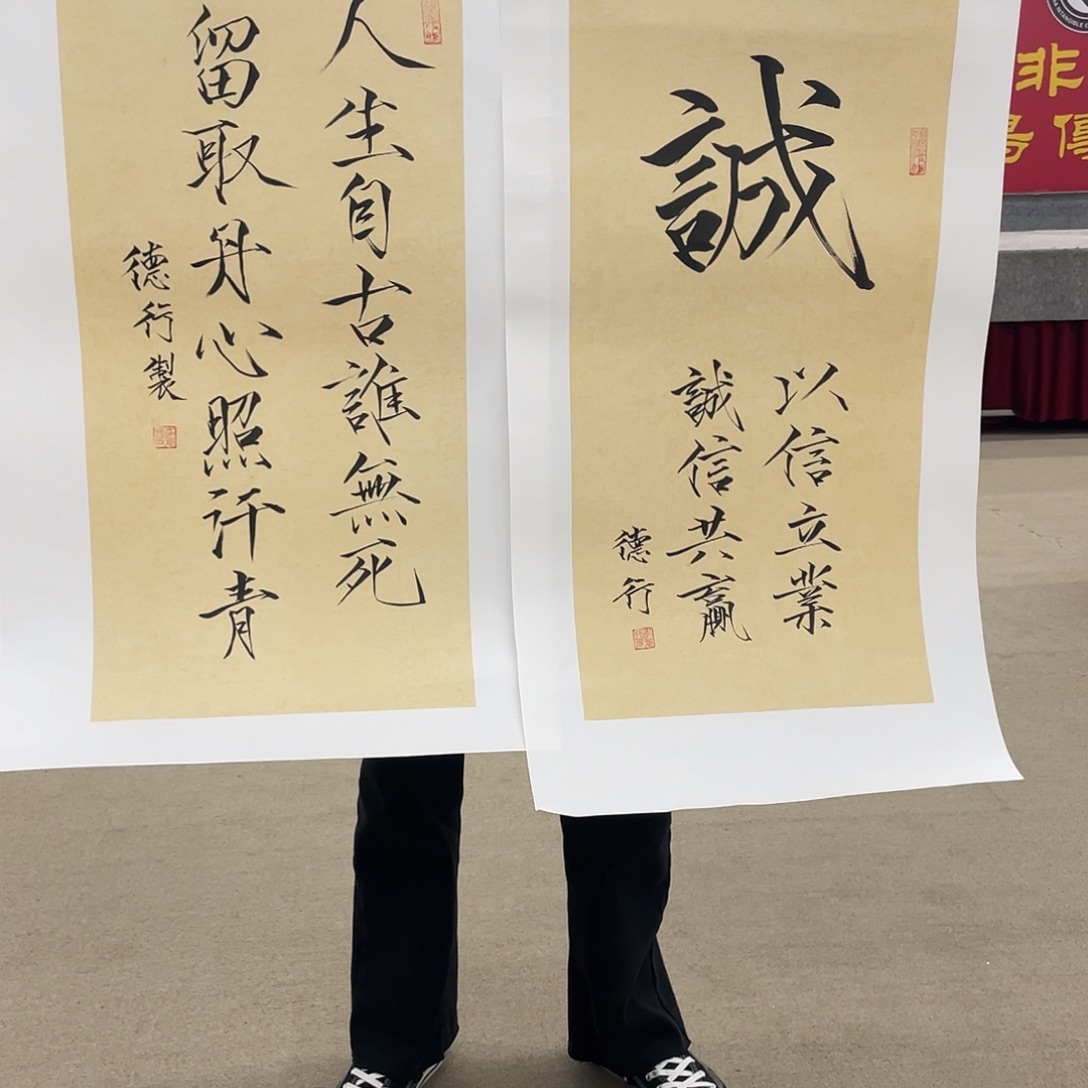 人生自古誰無死
留取丹心照汗青
德行製
誠
以信立業
誠信共贏
德行
非